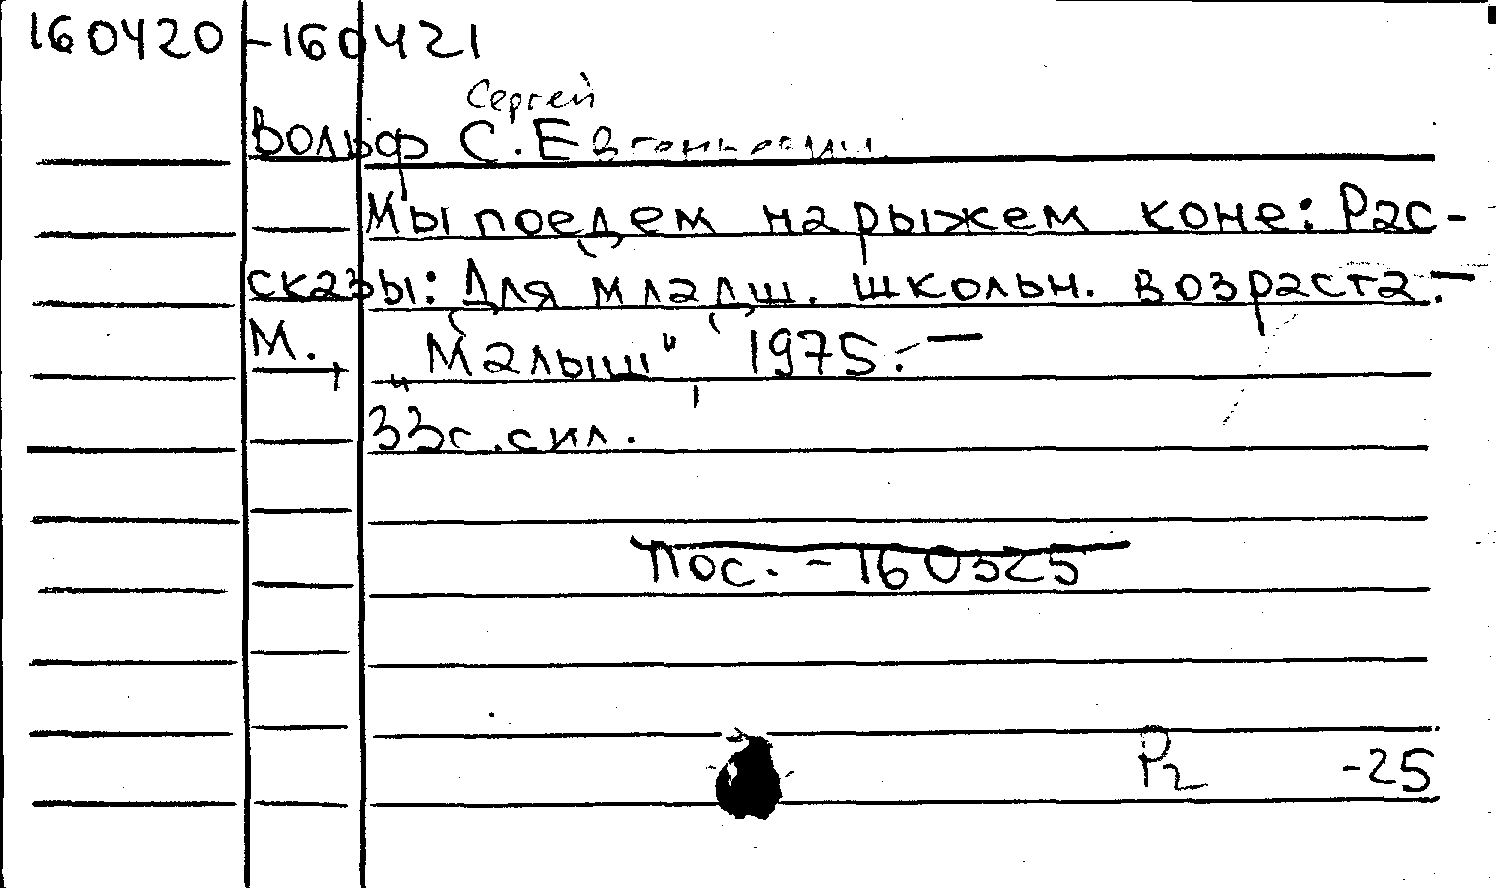 160420-160421
Сергей
Вольф С. Евгеньевич
Мы поедем на рыжем коне: Рас-
сказы: Для младш. школьн. возраста. —
М., "Малыш" 1975. —
33с. с ил.
Пос. - 160325
Р2 -25